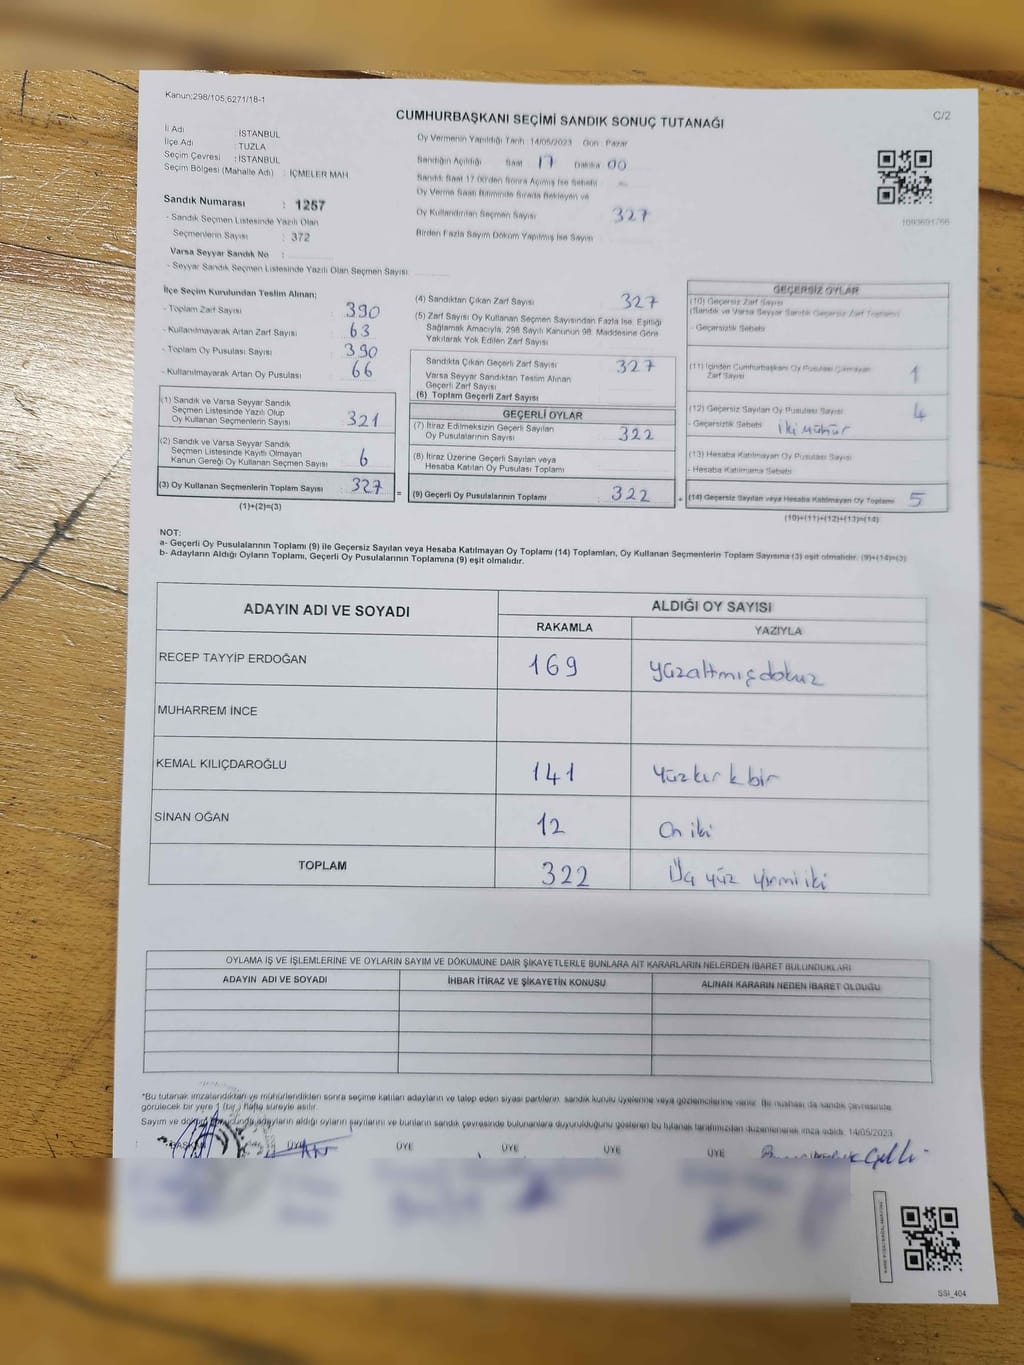 Kanun;298/105,6271/18-1
C/2
CUMHURBAŞKANI SEÇİMİ SANDIK SONUÇ TUTANAĞI
İl Adı : İSTANBUL
İlçe Adı : TUZLA
Seçim Çevresi : İSTANBUL
Seçim Bölgesi (Mahalle Adı) : İÇMELER MAH
Sandık Numarası : 1257
- Sandık Seçmen Listesinde Yazılı Olan
Seçmenlerin Sayısı : 372
Varsa Seyyar Sandık No :
- Seyyar Sandık Seçmen Listesinde Yazılı Olan Seçmen Sayısı
Oy Vermenin Yapıldığı Tarih : 14/05/2023 Gün : Pazar
Sandığın Açıldığı Saat 17 Dakika 00
Sandık Saat 17:00'den Sonra Açılmış İse Sebebi
Oy Verme Saati Bitiminde Sırada Bekleyen ve
Oy Kullandırılan Seçmen Sayısı 327
Birden Fazla Sayım Döküm Yapılmış İse Sayısı
İlçe Seçim Kurulundan Teslim Alınan;
- Toplam Zarf Sayısı 390
- Kullanılmayarak Artan Zarf Sayısı 63
- Toplam Oy Pusulası Sayısı 390
- Kullanılmayarak Artan Oy Pusulası 66
(1) Sandık ve Varsa Seyyar Sandık
Seçmen Listesinde Yazılı Olup
Oy Kullanan Seçmenlerin Sayısı 321
(2) Sandık ve Varsa Seyyar Sandık
Seçmen Listesinde Kayıtlı Olmayan
Kanun Gereği Oy Kullanan Seçmen Sayısı 6
(3) Oy Kullanan Seçmenlerin Toplam Sayısı 327 =
(1)+(2)=(3)
(4) Sandıktan Çıkan Zarf Sayısı 327
(5) Zarf Sayısı Oy Kullanan Seçmen Sayısından Fazla İse, Eşitliği
Sağlamak Amacıyla, 298 Sayılı Kanunun 98. Maddesine Göre
Yakılarak Yok Edilen Zarf Sayısı
Sandıkta Çıkan Geçerli Zarf Sayısı 327
Varsa Seyyar Sandıktan Teslim Alınan
Geçerli Zarf Sayısı
(6) Toplam Geçerli Zarf Sayısı
GEÇERLİ OYLAR
(7) İtiraz Edilmeksizin Geçerli Sayılan
Oy Pusulalarının Sayısı 322
(8) İtiraz Üzerine Geçerli Sayılan veya
Hesaba Katılan Oy Pusulası Toplamı
(9) Geçerli Oy Pusulalarının Toplamı 322 +
GEÇERSİZ OYLAR
(10) Geçersiz Zarf Sayısı
(Sandık ve Varsa Seyyar Sandık Geçersiz Zarf Toplamı)
- Geçersizlik Sebebi
(11) İçinden Cumhurbaşkanı Oy Pusulası Çıkmayan
Zarf Sayısı 1
(12) Geçersiz Sayılan Oy Pusulası Sayısı 4
- Geçersizlik Sebebi İki Mühür
(13) Hesaba Katılmayan Oy Pusulası Sayısı
- Hesaba Katılmama Sebebi
(14) Geçersiz Sayılan veya Hesaba Katılmayan Oy Toplamı 5
(10)+(11)+(12)+(13)=(14)
NOT:
a- Geçerli Oy Pusulalarının Toplamı (9) ile Geçersiz Sayılan veya Hesaba Katılmayan Oy Toplamı (14) Toplamları, Oy Kullanan Seçmenlerin Toplam Sayısına (3) eşit olmalıdır. (9)+(14)=(3)
b- Adayların Aldığı Oyların Toplamı, Geçerli Oy Pusulalarının Toplamına (9) eşit olmalıdır.
ADAYIN ADI VE SOYADI
ALDIĞI OY SAYISI
RAKAMLA YAZIYLA
RECEP TAYYİP ERDOĞAN 169 yüzaltmışdokuz
MUHARREM İNCE
KEMAL KILIÇDAROĞLU 141 Yüzkırk bir
SİNAN OĞAN 12 On iki
TOPLAM 322 Üç yüz yirmi iki
OYLAMA İŞ VE İŞLEMLERİNE VE OYLARIN SAYIM VE DÖKÜMÜNE DAİR ŞİKAYETLERLE BUNLARA AİT KARARLARIN NELERDEN İBARET BULUNDUKLARI
ADAYIN ADI VE SOYADI İHBAR İTİRAZ VE ŞİKAYETİN KONUSU ALINAN KARARIN NEDEN İBARET OLDUĞU
*Bu tutanak imzalandıktan ve mühürlendikten sonra seçime katılan adayların ve talep eden siyasi partilerin sandık kurulu üyelerine veya gözlemcilerine verilir. Bir nüshası da sandık çevresinde
görülecek bir yere 1 (bir) hafta süreyle asılır.
Sayım ve döküm sonucunda adayların aldığı oyların sayılarını ve bunların sandık çevresinde bulunanlara duyurulduğunu gösteren bu tutanak tarafımızdan düzenlenerek imza edildi. 14/05/2023
BAŞKAN ÜYE ÜYE ÜYE ÜYE ÜYE
SSI_404